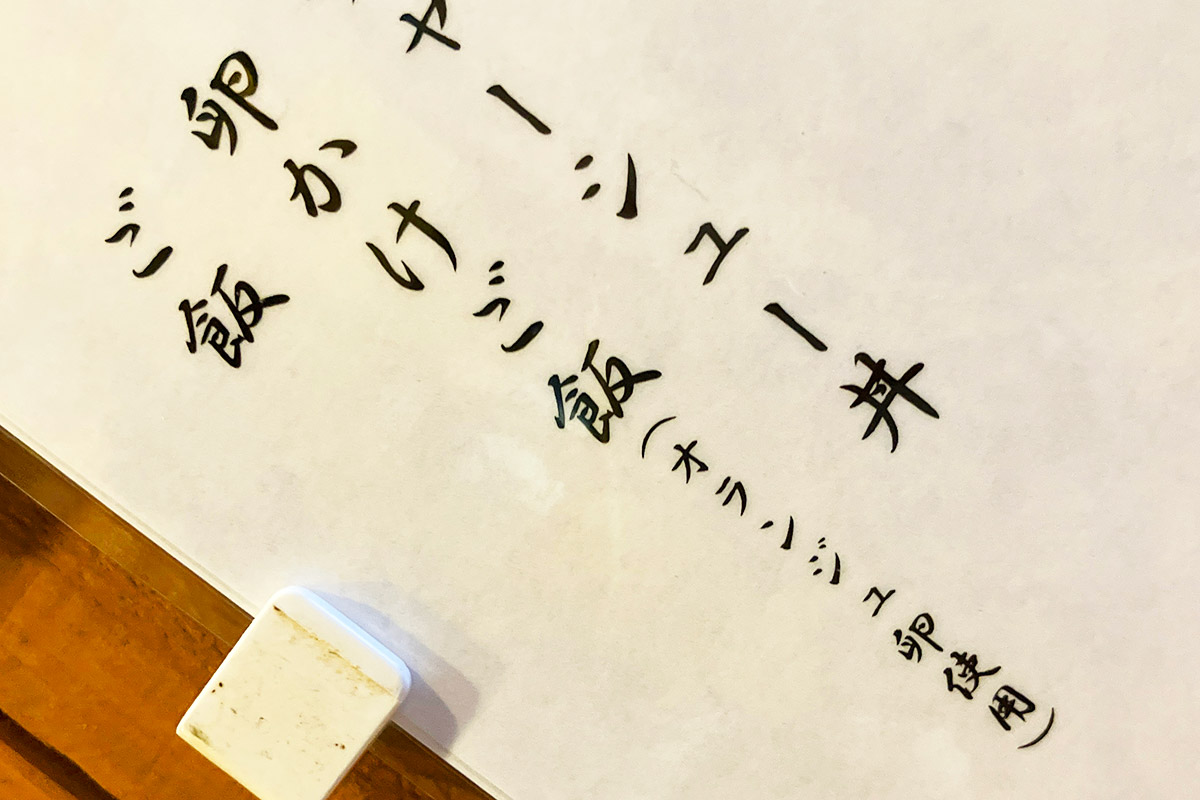 ャーシュー丼
卵かけご飯(オランジュ卵使用)
ご飯